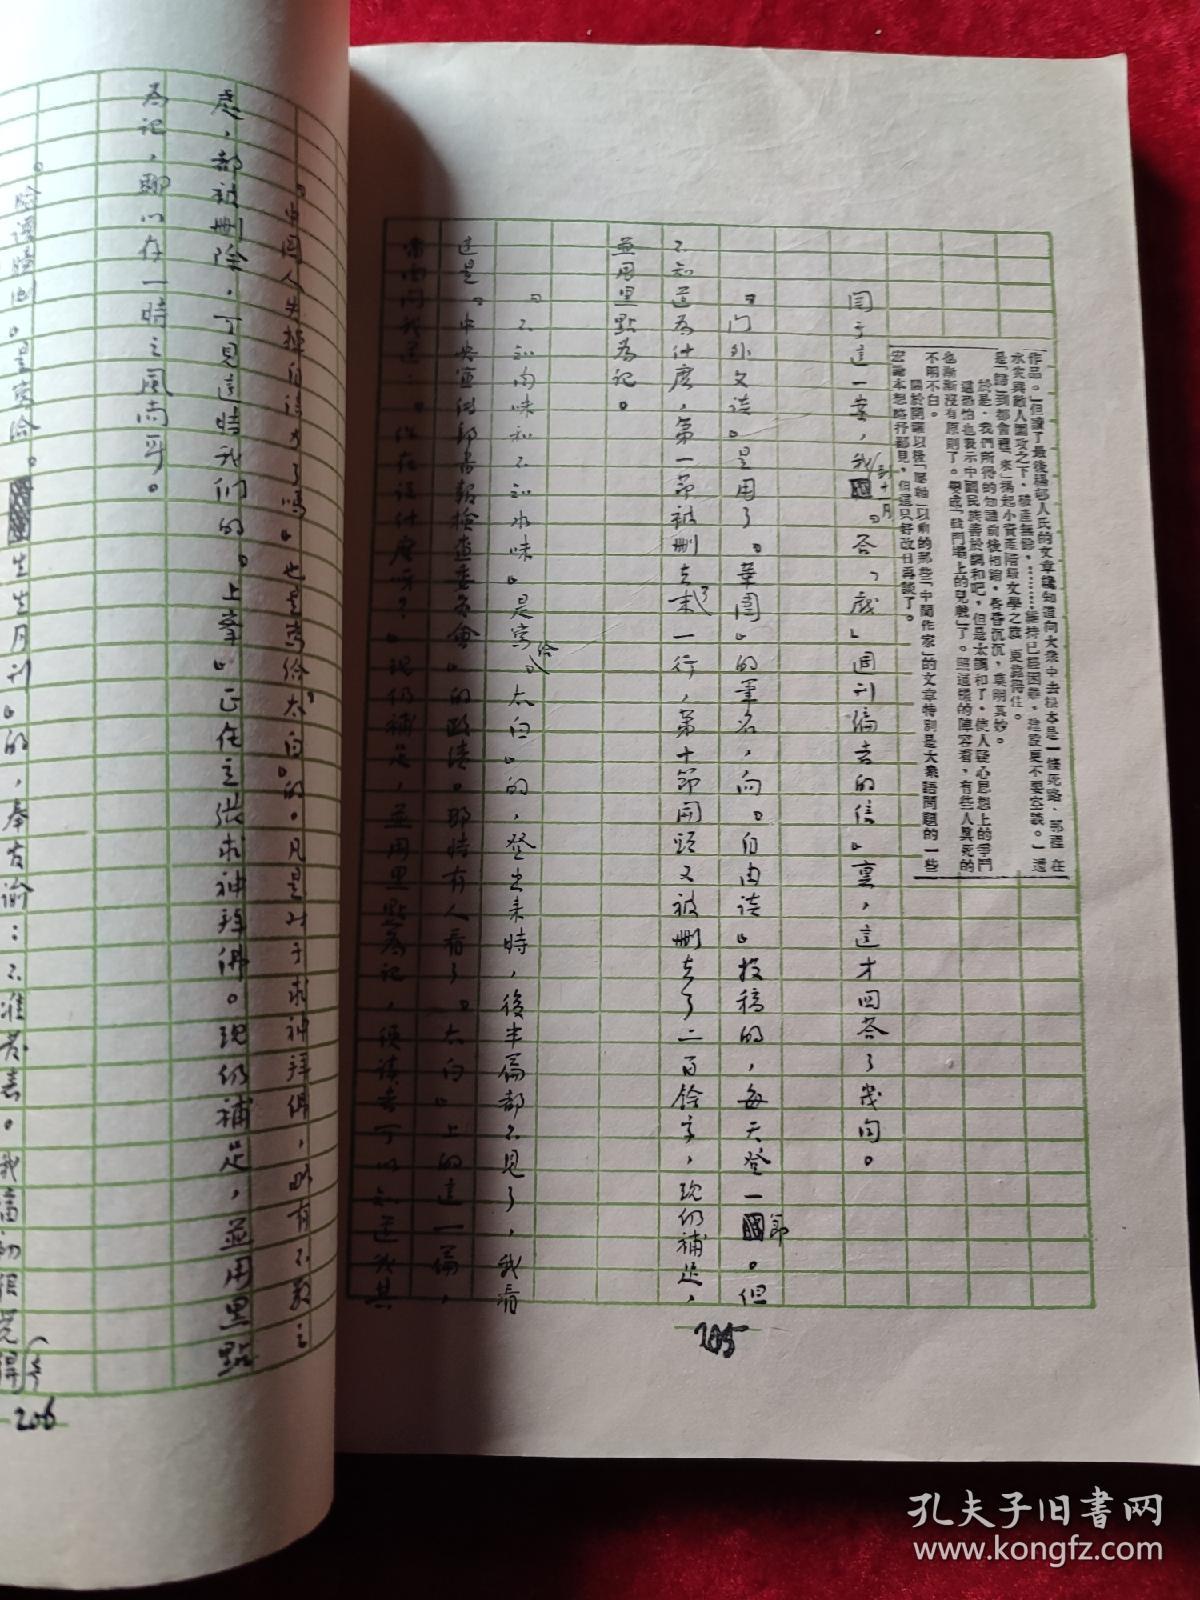 作品。」但讀了最後楊邨人氏的文章纔知道向大衆中去
是「歸」到都會裡「來」揭起小資產階級文學之旗
於是，我們所得的知識前後相銷，昏昏沉沉，莫明其妙。
這恐怕也表示中國民族善於調和吧，但是太調和了，使人疑心思想上的爭鬥
也漸漸沒有原則了。變成「戲門場上的兒戲」了。照這樣的陣容看，有些人真死的
不明不白。
關於開鑼以後「壓軸」以前的那些「中間作家」的文章特別是大衆語問題的一些
宏論本想略抒鄙見，但這只好改日再談了。
關于這一案，我到十一月『答「戲」週刊編者的信』裏，這才回答了幾句。
『門外文談』是用了『華圉』的筆名，向『自由談』投稿的，每天登一節。但
不知道為什麽，第一節被刪去了末一行，第十節開頭又被刪去了二百餘字，現仍補足，
並用黑點為記。
『不知肉味和不知水味』是寫給『太白』的，登出來時，後半篇都不見了，我看
這是『中央宣傳部書報檢查委員會』的政績。那時有人看了『太白』上的這一篇，
當面問我道：『你在說什麽呀？』現仍補足，並用黑點為記，使讀者可以知道我其
205
『中國人失掉自信力了嗎』也是寫給『太白』的。凡是對于求神拜佛，略有不敬之
處，都被刪除，可見這時我們的『上峯』正在主張求神拜佛。現仍補足，並用黑點
為記，聊以存一時之風尚耳。
『臉譜臆測』是寫給『生生月刊』的，奉官諭：不准發表。我當初很覺得
206
孔夫子旧书网
www.kongfz.com